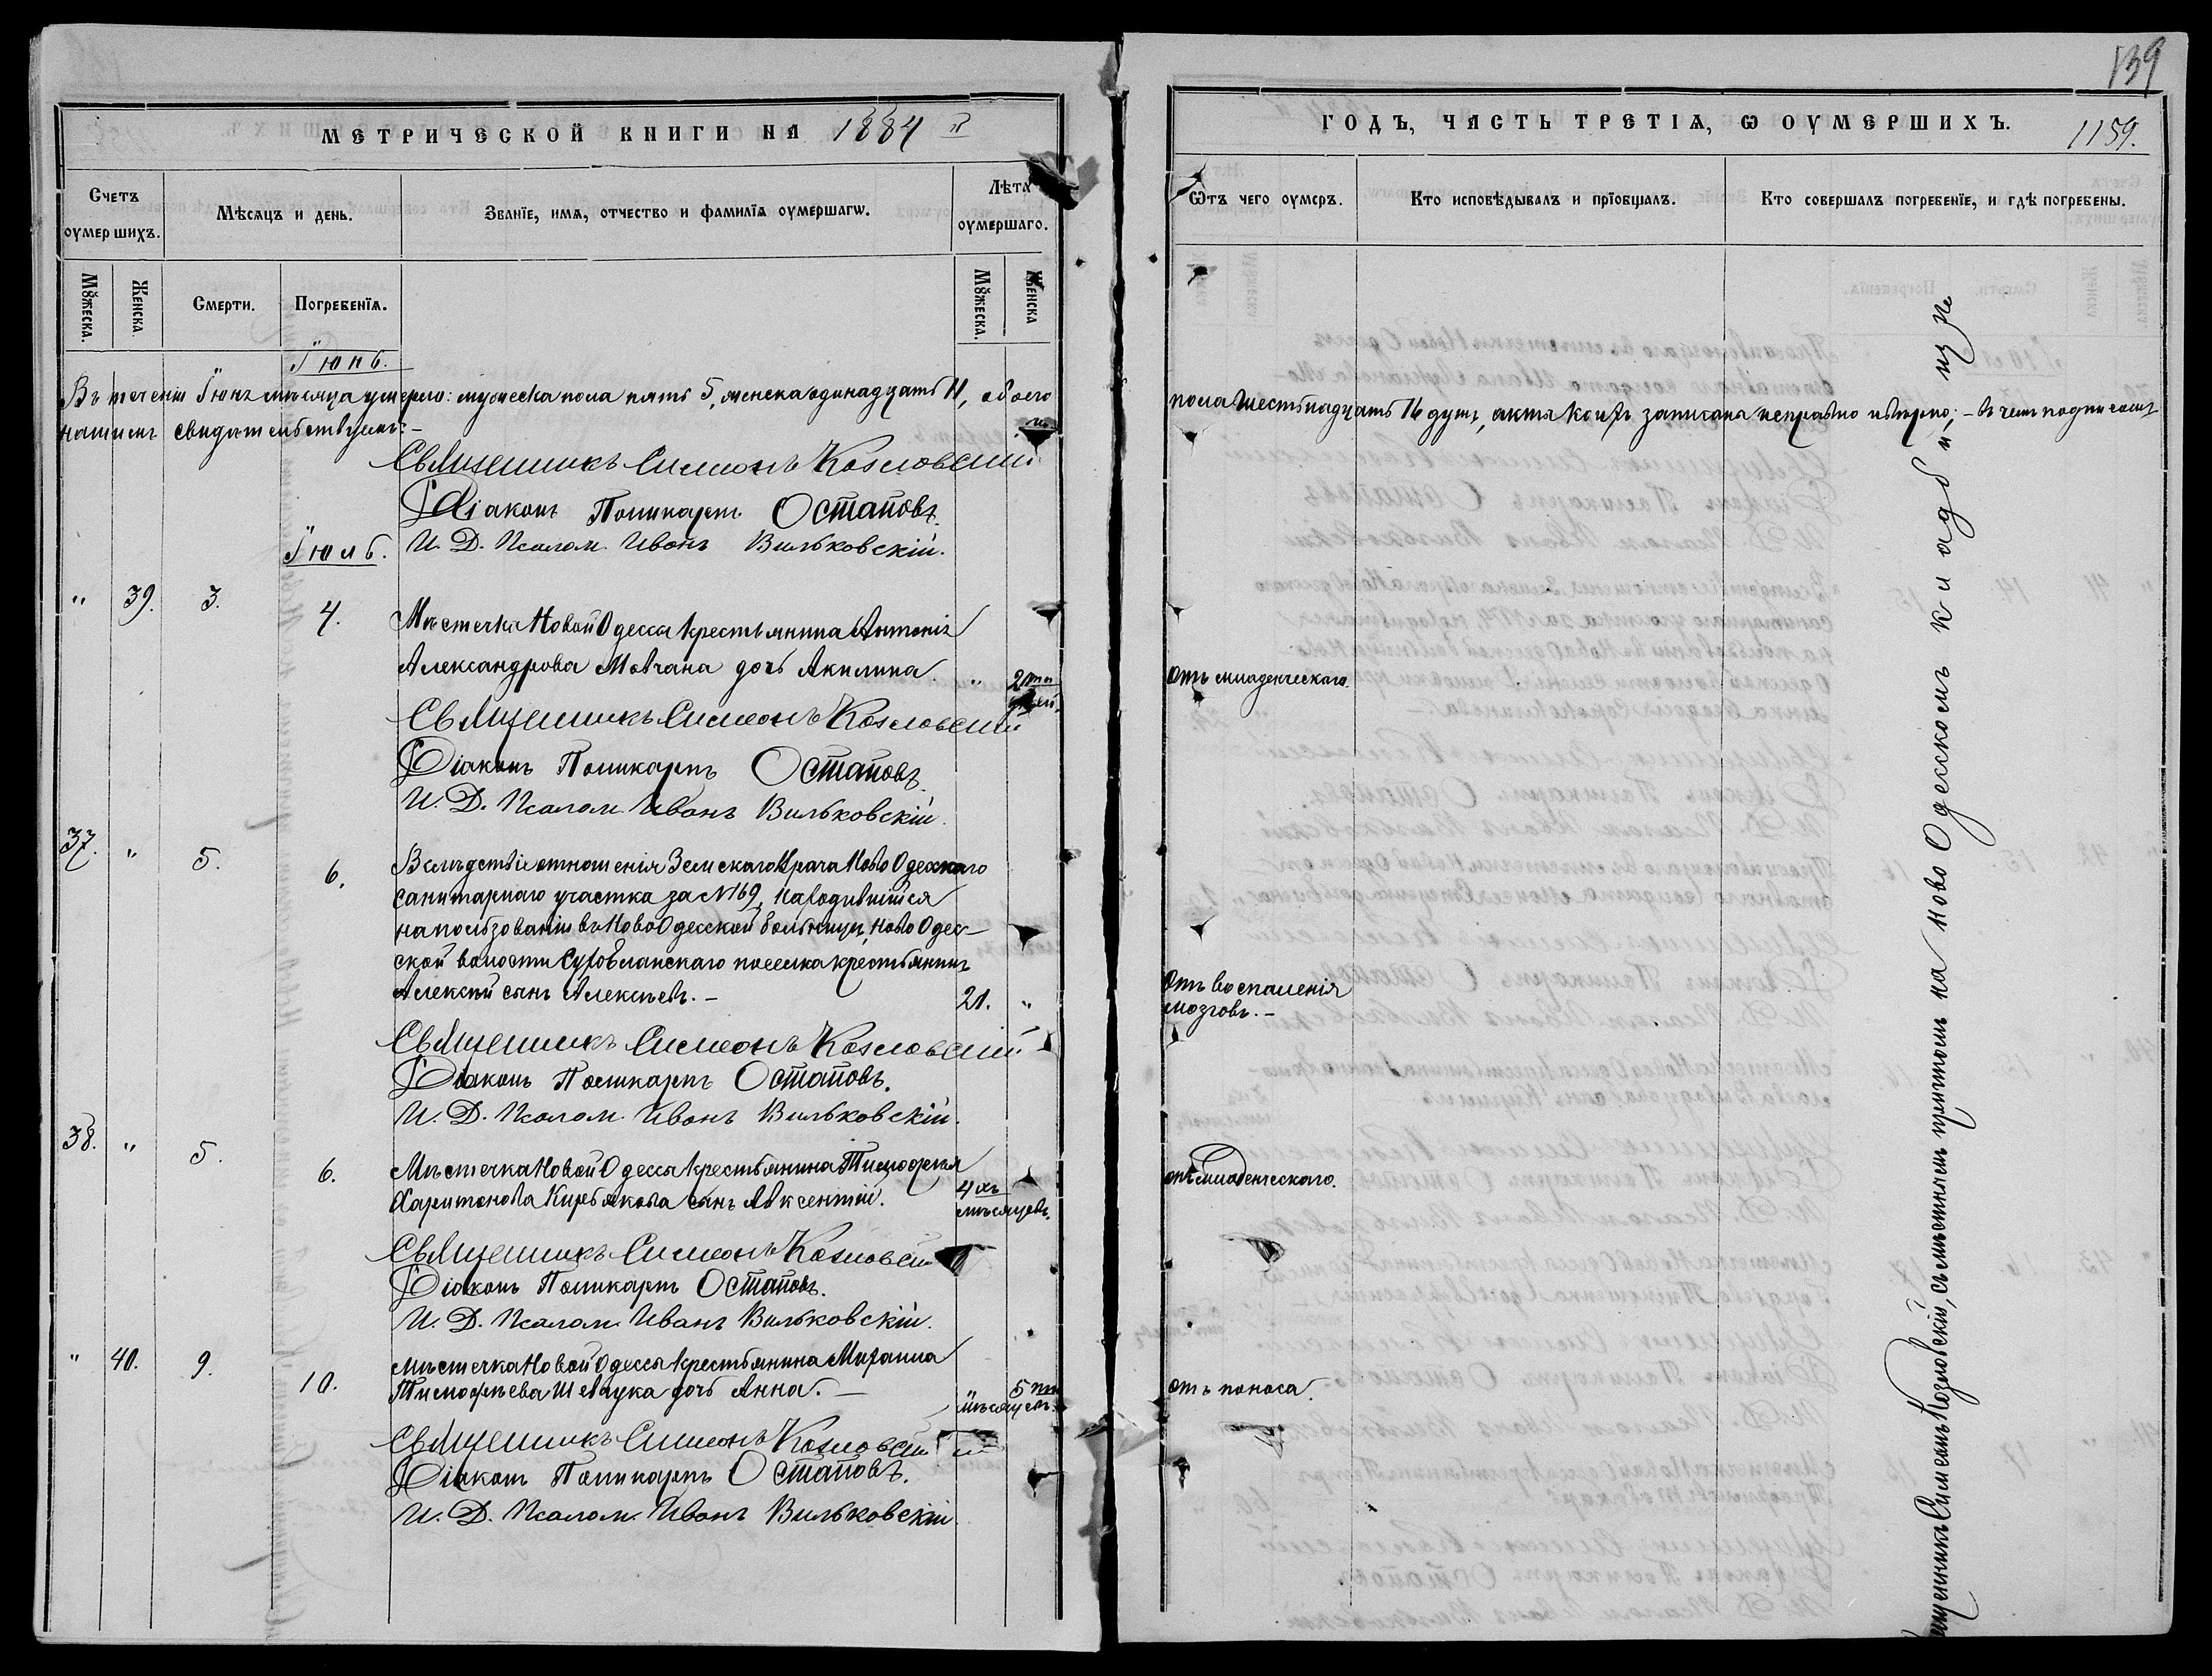 МЕТРИЧЕСКОЙ КНИГИ НА 1884 й
Счетъ оумершихъ.
Мѣсяцъ и день.
Званїе, имя, отчество и фамилїя оумершагѡ.
Лѣта оумершаго.
Мꙋжеска.
Женска
Смерти.
Погребенїя.
Мꙋжеска.
Женска
Іюнь.
Въ теченіи Іюнѣ мѣсяца умерло: мужеска пола пять 5, женска одинадцать 11, обоего
нашимъ свидѣтельствуемъ:-
Священникъ Симеонъ Козловскій
Діаконъ Поликарпъ Остаповъ.
И. Д. Псалом. Иванъ Вильковскій.
Іюль.
" 39. 3. 4. Мѣстечка Новой Одессы крестьянина Антонія
Александрова Мовчана дочь Акилина. " 2хъ дней.
Священникъ Симеонъ Козловскій
Діаконъ Поликарпъ Остаповъ.
И. Д. Псалом. Иванъ Вильковскій.
37. " 5. 6. Вслѣдствіе отношенія Земскаго Врача Ново Одесскаго
санитарнаго участка за №169, находившійся
на пользованіи въ Ново Одесской больницѣ, Ново Одес-
ской волости Суховланскаго поселка крестьянинъ
Алексѣй сынъ Алексѣевъ.- 21. "
Священникъ Симеонъ Козловскій
Діаконъ Поликарпъ Остаповъ.
И. Д. Псалом. Иванъ Вильковскій.
38. " 5. 6. Мѣстечка Новой Одессы крестьянина Тимофея
Харитонова Кирьякова сынъ Авксентій. 4хъ мѣсяцевъ.
Священникъ Симеонъ Козловскій
Діаконъ Поликарпъ Остаповъ.
И. Д. Псалом. Иванъ Вильковскій.
" 40. 9. 10. мѣстечка Новой Одессы крестьянина Михаила
Тимофѣева Шевчука дочь Анна.- 5ти мѣсяцевъ.
Священникъ Симеонъ Козловскій
Діаконъ Поликарпъ Остаповъ.
И. Д. Псалом. Иванъ Вильковскій
139
ГОДЪ, ЧАСТЬ ТРЕТІЯ, Ѡ ОУМЕРШИХЪ.
1159.
Ѿтъ чего оумеръ.
Кто исповѣдывалъ и прїобщалъ.
Кто совершалъ погребенїе, и гдѣ погребены.
пола шестьнадцать 16 душъ, акта коихъ записана исправно и вѣрно;- въ чемъ подписомъ
Отъ младенческаго.
Отъ воспаленія
мозговъ.-
отъ младенческаго.
отъ поноса.
Священникъ Симеонъ Козловскій, съ мѣстнымъ причтомъ на Ново Одесскомъ кладбищѣ